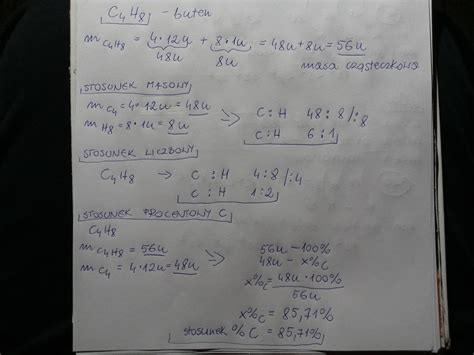 C₄H₈ - buten
m C₄H₈ = 4·12u + 8·1u = 48u+8u = 56u
48u 8u
masa cząsteczkowa
STOSUNEK MASOWY
m C₄ = 4·12u = 48u
m H₈ = 8·1u = 8u
C : H 48 : 8 /:8
C : H 6 : 1
STOSUNEK LICZBOWY
C₄H₈ → C : H 4:8 /:4
C : H 1:2
STOSUNEK PROCENTOWY C
C₄H₈
m C₄H₈ = 56u
m C₄ = 4·12u = 48u
56u - 100%
48u - x%C
x%C = 48u·100%
56u
x%C = 85,71%
stosunek %C = 85,71%